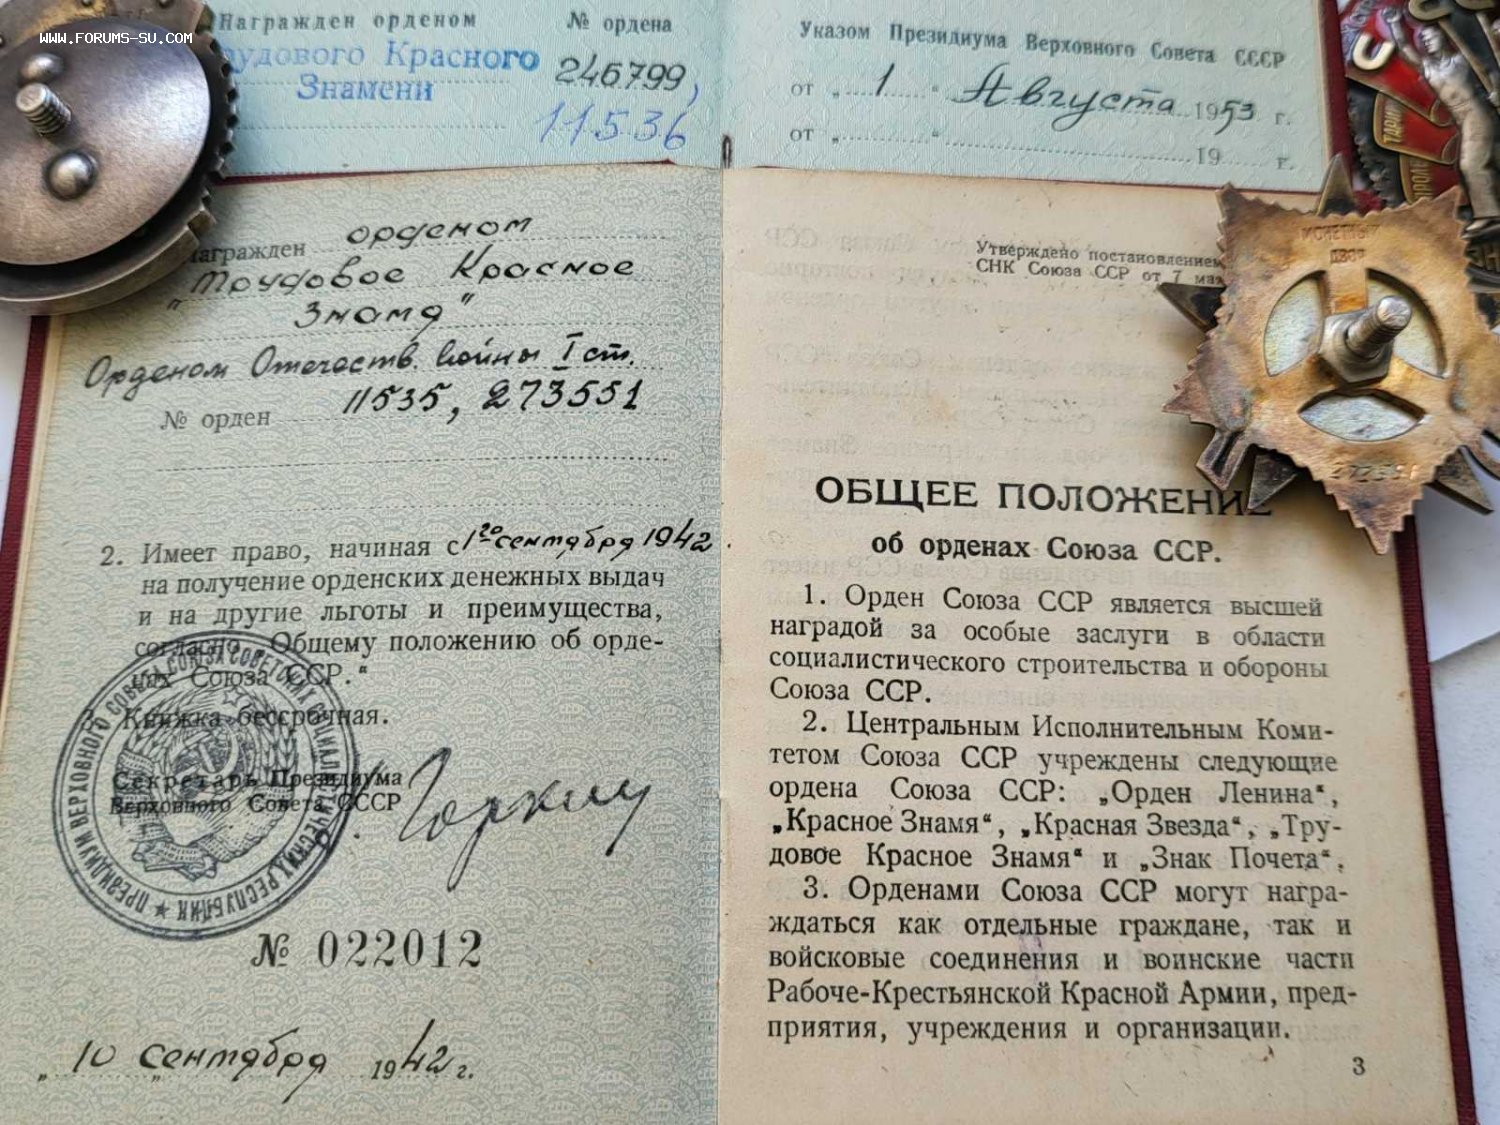 WWW.FORUMS-SU.COM
Награжден орденом № ордена
Трудового Красного
Знамени 246799,
11536
Указом Президиума Верховного Совета СССР
от „ 1 “ Августа 1953 г.
от „ “ 19 г.
награжден орденом
„Трудовое Красное
Знамя“
Орденом Отечеств. войны I ст.
№ орден 11535, 273551
2. Имеет право, начиная с 1го сентября 1942
на получение орденских денежных выдач
и на другие льготы и преимущества,
согласно „Общему положению об орде-
нах Союза ССР.“
3. Книжка бессрочная.
Секретарь Президиума
Верховного Совета СССР
Горкин
ПРЕЗИДИУМ ВЕРХОВНОГО СОВЕТА СОЮЗА СОВЕТСКИХ СОЦИАЛИСТИЧЕСКИХ РЕСПУБЛИК
№ 022012
„ 10 “ сентября 1942 г.
Утверждено постановлением
СНК Союза ССР от 7 мая
ОБЩЕЕ ПОЛОЖЕНИЕ
об орденах Союза ССР.
1. Орден Союза ССР является высшей
наградой за особые заслуги в области
социалистического строительства и обороны
Союза ССР.
2. Центральным Исполнительным Коми-
тетом Союза ССР учреждены следующие
ордена Союза ССР: „Орден Ленина“,
„Красное Знамя“, „Красная Звезда“, „Тру-
довое Красное Знамя“ и „Знак Почета“.
3. Орденами Союза ССР могут награ-
ждаться как отдельные граждане, так и
войсковые соединения и воинские части
Рабоче-Крестьянской Красной Армии, пред-
приятия, учреждения и организации.
3
МОНЕТНЫЙ
ДВОР
273551